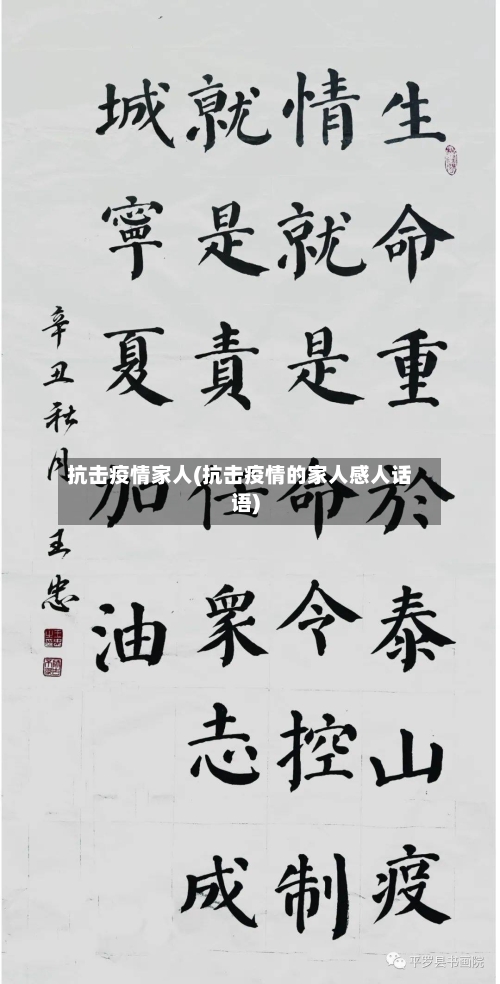 生命重於泰山疫
情就是命令控制
就是責任衆志成
城寧夏加油
辛丑秋月 王忠
抗击疫情家人(抗击疫情的家人感人话
语)
平罗县书画院